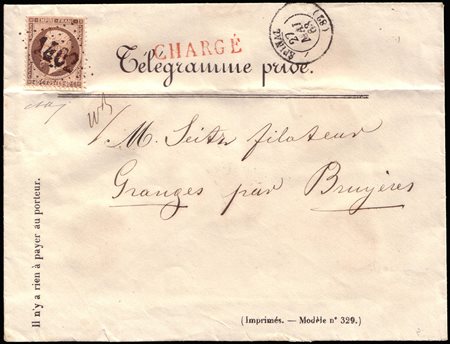 EMPIRE FRANC
CHARGÉ
EPINAL
27
MAI
63
(82)
Télégramme privé.
M. Seitz filateur
Granges par Bruyères
Il n'y a rien à payer au porteur.
(Imprimés. — Modèle n° 329.)